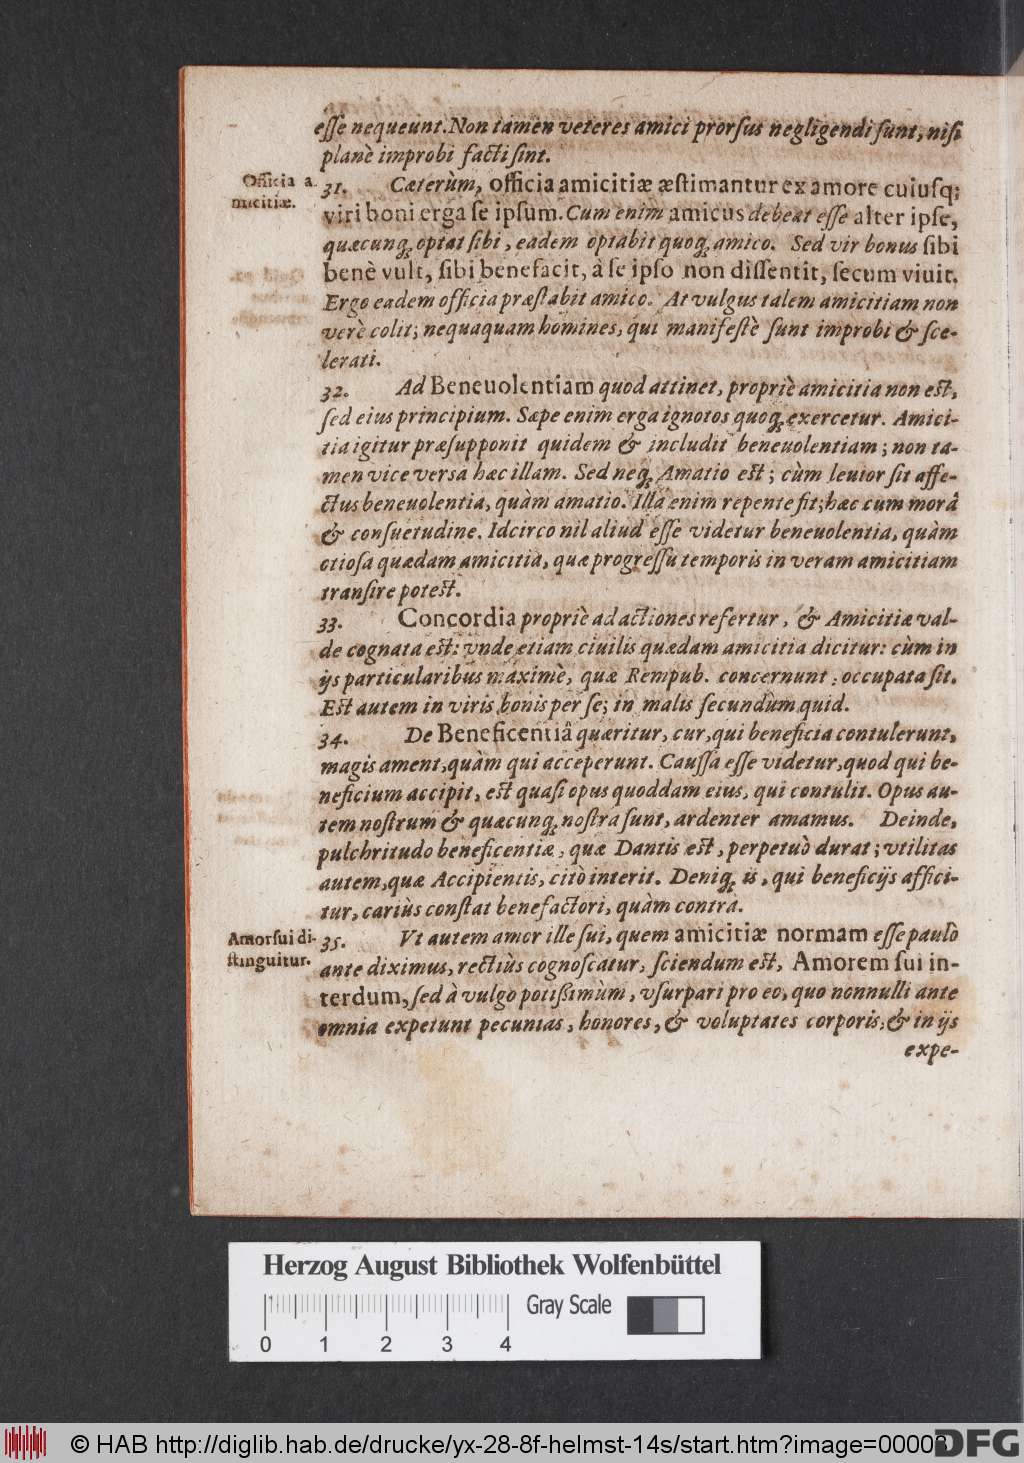 esse nequeunt. Non tamen veteres amici prorsus negligendi sunt, nisi
planè improbi facti sint.
Officia a-
micitiæ.
31. Cæterùm, officia amicitiæ æstimantur ex amore cuiusq;
viri boni erga se ipsum. Cum enim amicus debeat esse alter ipse,
quæcunq; optat sibi, eadem optabit quoq; amico. Sed vir bonus sibi
benè vult, sibi benefacit, à se ipso non dissentit, secum viuit.
Ergo eadem officia præstabit amico. At vulgus talem amicitiam non
verè colit; nequaquam homines, qui manifestè sunt improbi & sce-
lerati.
32. Ad Beneuolentiam quod attinet, propriè amicitia non est,
sed eius principium. Sæpe enim erga ignotos quoq; exercetur. Amici-
tia igitur præsupponit quidem & includit beneuolentiam; non ta-
men vice versa hæc illam. Sed neq; Amatio est; cùm leuior sit affe-
ctus beneuolentia, quàm amatio. Illa enim repente fit; hæc cum morâ
& consuetudine. Idcirco nil aliud esse videtur beneuolentia, quàm
otiosa quædam amicitia, quæ progressu temporis in veram amicitiam
transire potest.
33. Concordia propriè ad actiones refertur, & Amicitiæ val-
de cognata est: vnde etiam ciuilis quædam amicitia dicitur: cùm in
ijs particularibus maximè, quæ Rempub. concernunt, occupata sit.
Est autem in viris bonis per se; in malis secundùm quid.
34. De Beneficentiâ quæritur, cur, qui beneficia contulerunt,
magis ament, quàm qui acceperunt. Caussa esse videtur, quod qui be-
neficium accipit, est quasi opus quoddam eius, qui contulit. Opus au-
tem nostrum & quæcunq; nostra sunt, ardenter amamus. Deinde,
pulchritudo beneficentiæ, quæ Dantis est, perpetuò durat; vtilitas
autem, quæ Accipientis, citò interit. Deniq; is, qui beneficijs affici-
tur, cariùs constat benefactori, quàm contrà.
Amor sui di-
stinguitur.
35. Vt autem amor ille sui, quem amicitiæ normam esse paulò
ante diximus, rectiùs cognoscatur, sciendum est, Amorem sui in-
terdum, sed à vulgo potißimùm, vsurpari pro eo, quo nonnulli ante
omnia expetunt pecunias, honores, & voluptates corporis; & in ijs
expe-
Herzog August Bibliothek Wolfenbüttel
Gray Scale
0 1 2 3 4
© HAB http://diglib.hab.de/drucke/yx-28-8f-helmst-14s/start.htm?image=00008
DFG